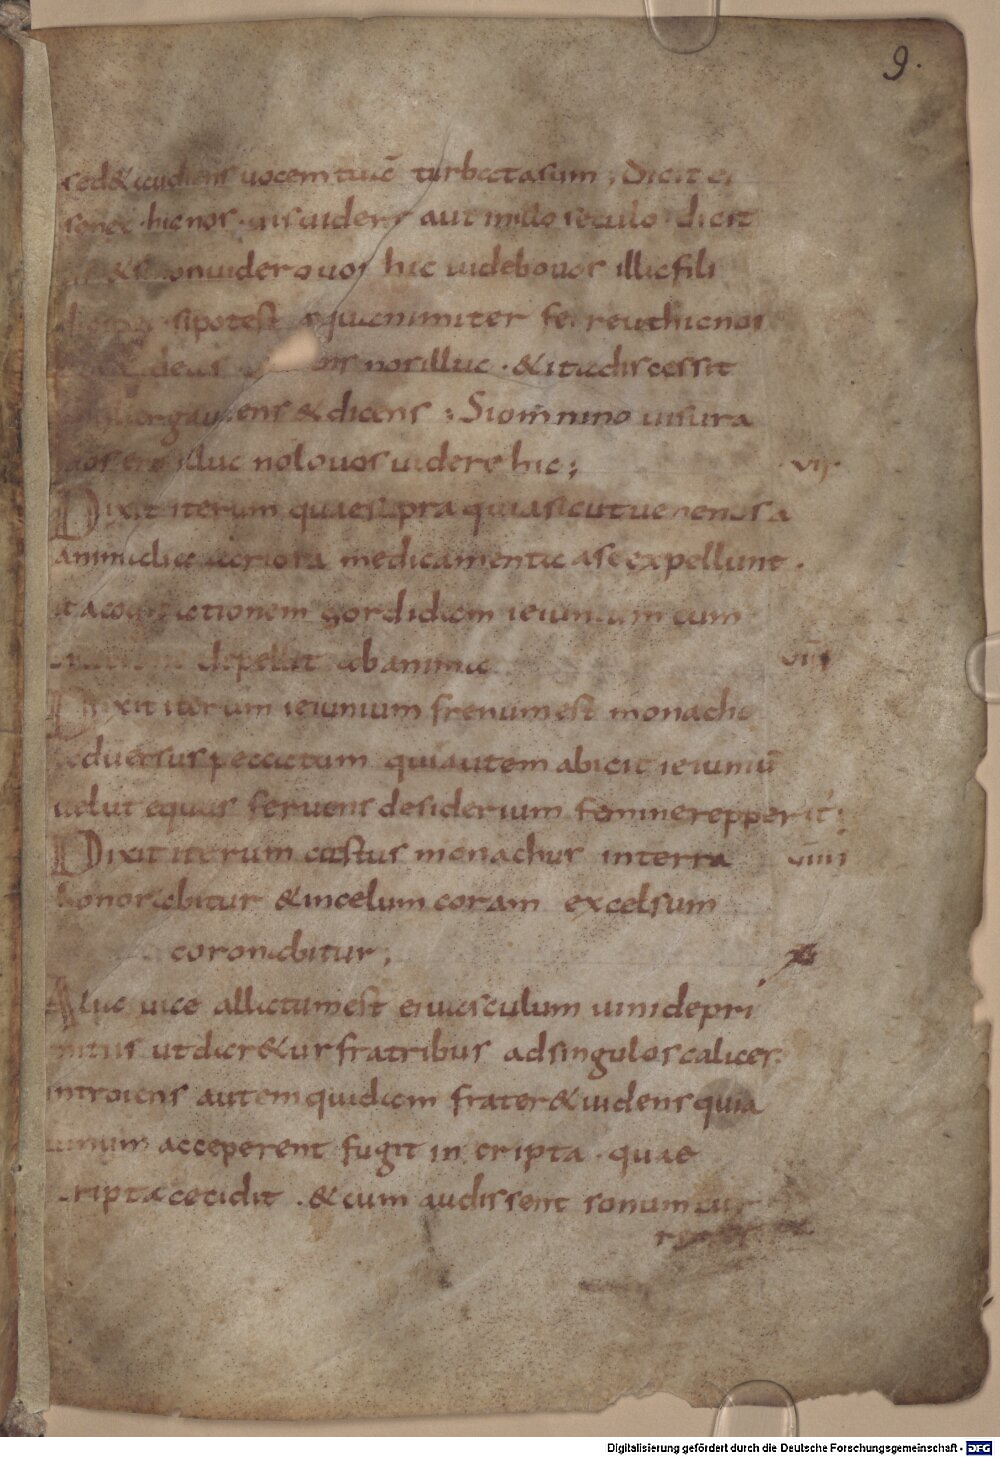 9.
sed & audiens uocem tuā turbata sum ; Dicit ei
senex · hic nos uis uidere aut in illo seculo · dicit
& si non uidero uos hic uidebo uos illic fili
si potest aequanimiter hic nos
nos illuc · & ita discessit
gaudens & dicens ; Si omnino uisura
uos illuc nolo uos uidere hic ;
vii·
Dixit iterum quae supra quia sicut uenenosa
animalia acriora medicamenta a se expellunt ·
ita cogitationem sordidam ieiunium cum
depellit ab anima
viii
Dixit iterum ieiunium frenum est monacho
aduersus peccatum qui autem abicit ieiuniū
uelut equus feruens desiderium femine repperit ;
Dixit iterum castus monachus in terra
viiii
honorabitur & in celum coram excelsum
coronabitur ;
x
Alia uice allatum est ei uasculum uini de pri
mitiis ut dicr&ur fratribus ad singulos calices
introiens autem quidam frater & uidens quia
uinum acceperent fugit in cripta · quae
cripta cecidit · & cum audissent sonum
Digitalisierung gefördert durch die Deutsche Forschungsgemeinschaft - DFG